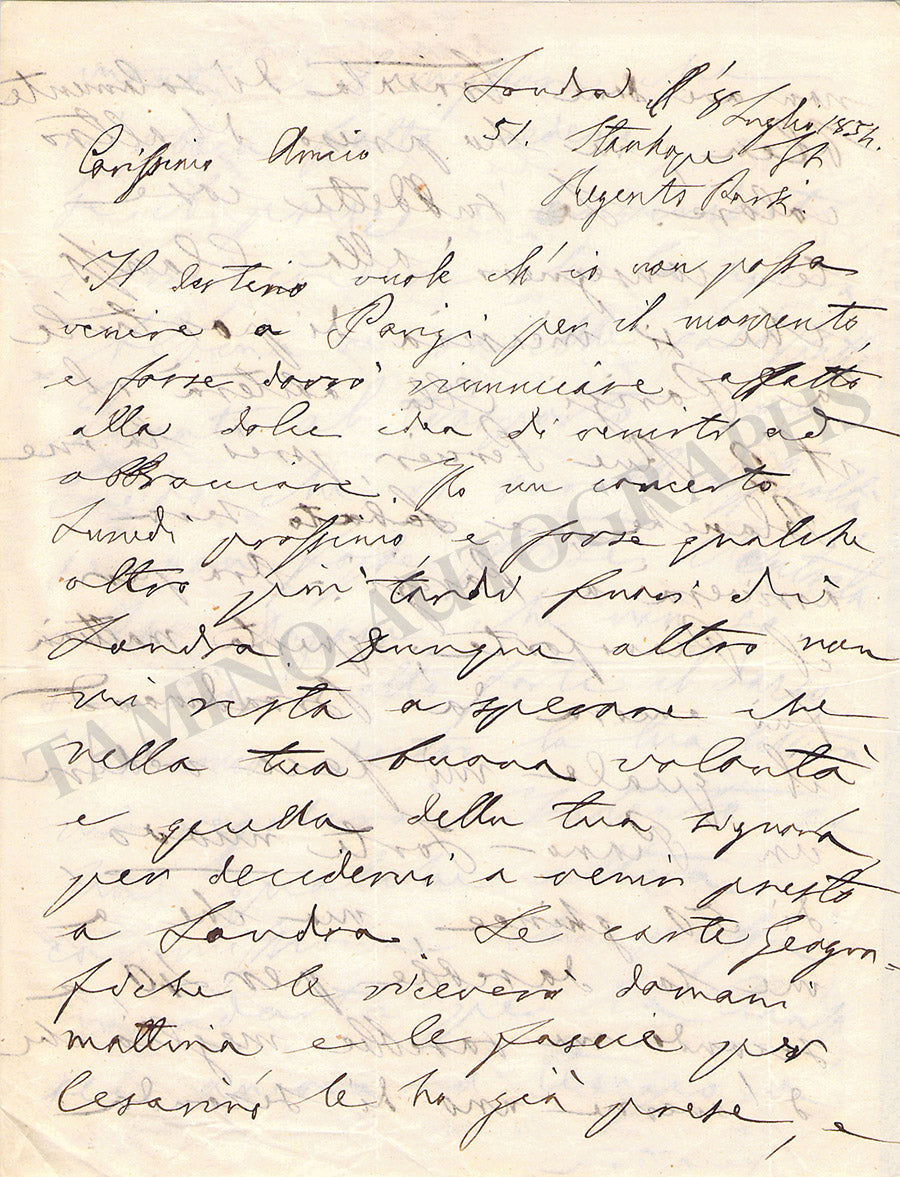 Londra il 8 Luglio 1854.
51. Stanhope St.
Carissimo Amico
Regents Park.
Il destino vuole ch'io non possa
venire a Parigi per il momento,
e forse dovrò rinunciare affatto
alla dolce idea di venirti ad
abbracciare. Ho un concerto
Lunedì prossimo, e forse qualche
altro più tardi fuori di
Londra. Dunque altro non
mi resta a sperare che
nella tua buona volontà
e quella della tua signora,
per decidervi a venir presto
a Londra. Le carte Geogra=
fiche le riceverò domani
mattina e le fascie per
Cesarino le ho già prese, e
TAMINO AUTOGRAPHS